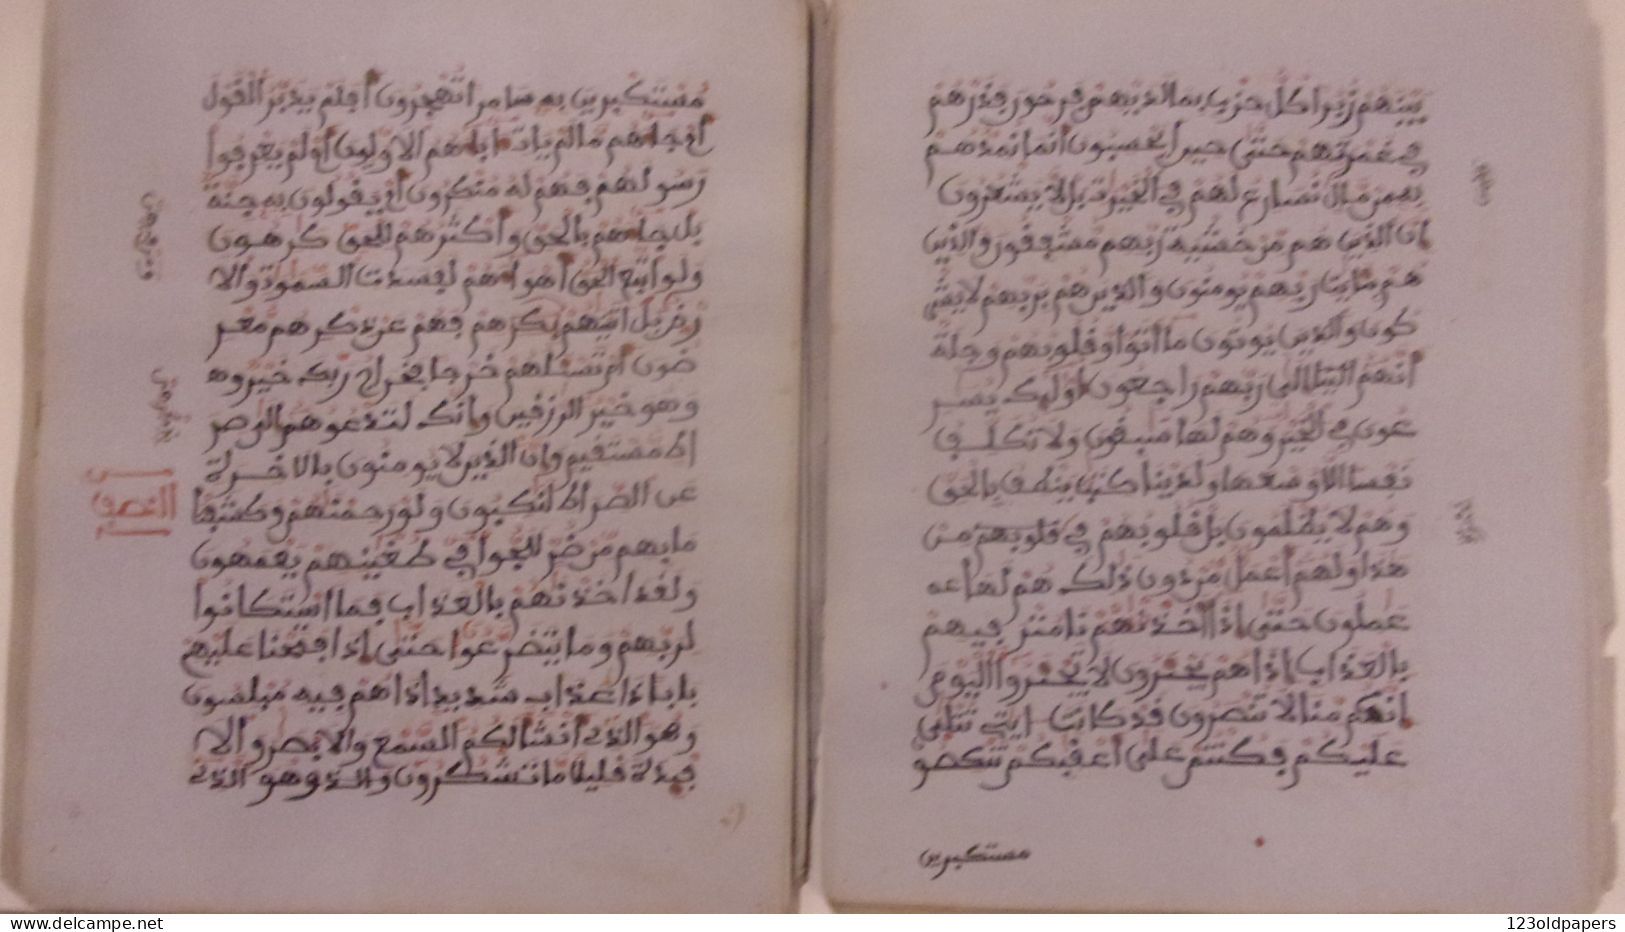 بينهم زبرا كل حزب بما لديهم فرحون فذرهم
في غمرتهم حتى حين أيحسبون أنما نمدهم
به من مال نسارع لهم في الخيرت بل لا يشعرون
ان الذين هم من خشية ربهم مشفقون والذين
هم بايت ربهم يومنون والذين هم بربهم لا يش
كون والذين يوتون ما اتوا وقلوبهم وجلة
أنهم الى ربهم راجعون اولىك يسر
عون في الخيرت وهم لها سبقون ولا نكلف
نفسا الا وسعها ولدينا كتب ينطق بالحق
وهم لا يظلمون بل قلوبهم في من
هذا ولهم أعمل من دون ذلك هم لها
عملون حتى اذا أخذنا مترفيهم
بالعذاب اذا هم يجرون لا تجروا اليوم
انكم منا لا تنصرون قد كانت ايتي تتلى
عليكم فكنتم على أعقبكم تنكصو
مستكبرين
مستكبرين به سامرا تهجرون أفلم يدبروا القول
أم جاهم ما لم يات اباهم الاولين أم لم يعرفوا
رسولهم فهم له منكرون أم يقولون به جنة
بل جاهم بالحق وأكثرهم للحق كرهون
ولو اتبع الحق أهواهم لفسدت السموت والا
رض بل اتينهم بذكرهم فهم عن ذكرهم معر
ضون أم تسلهم خرجا فخراج ربك خير وه
وهو خير الرزقين وانك لتدعوهم الى صر
اط مستقيم وان الذين لا يومنون بالاخرة
عن الصراط لنكبون ولو رحمنهم وكشفنا
ما بهم من ضر للجوا في طغينهم يعمهون
ولقد اخذنهم بالعذاب فما استكانوا
لربهم وما يتضرعون حتى اذا فتحنا عليهم
بابا ذا عذاب شديد اذا هم فيه مبلسون
وهو الذي أنشا لكم السمع والابصر والا
فيدة قليلا ما تشكرون وهو الذي
النصف
123oldpapers
www.delcampe.net